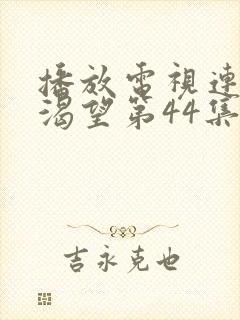 播放電視連
渴望第44集
吉永克也